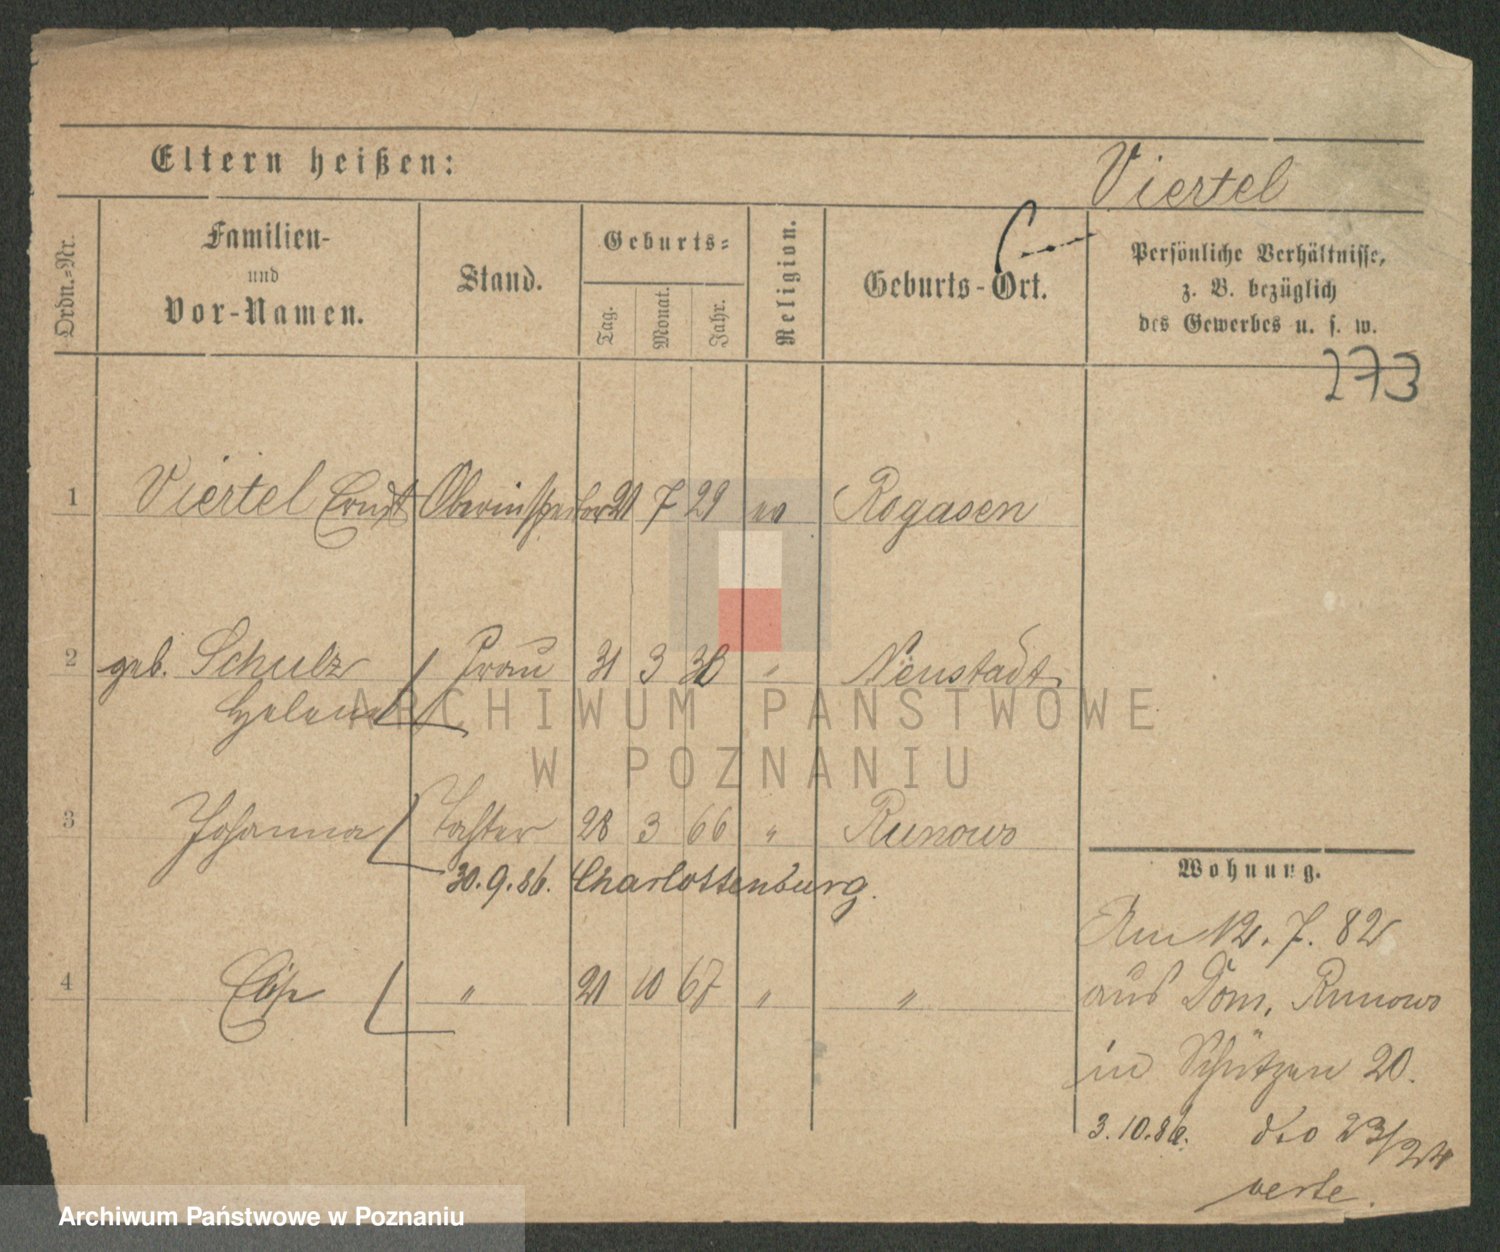 Eltern heißen:
Viertel
Ordn.-Nr.
Familien-
und
Vor-Namen.
Stand.
Geburts-
Tag.
Monat.
Jahr.
Religion.
Geburts-Ort.
Persönliche Verhältnisse,
z. B. bezüglich
des Gewerbes u. s. w.
273
1 Viertel Ernst Oberinspector 21 7 29 ev Rogasen
2 geb. Schulz Frau 31 3 38 " Neustadt
Helene
3 Johanna Tochter 28 3 66 " Runowo
30.9.86. Charlottenburg.
4 Elise " 21 10 67 " "
Wohnung.
Am 12. 7. 82
aus Dom. Runowo
in Schützen 20.
3.10.86. dto 23/24
verte.
ARCHIWUM PAŃSTWOWE
W POZNANIU
Archiwum Państwowe w Poznaniu